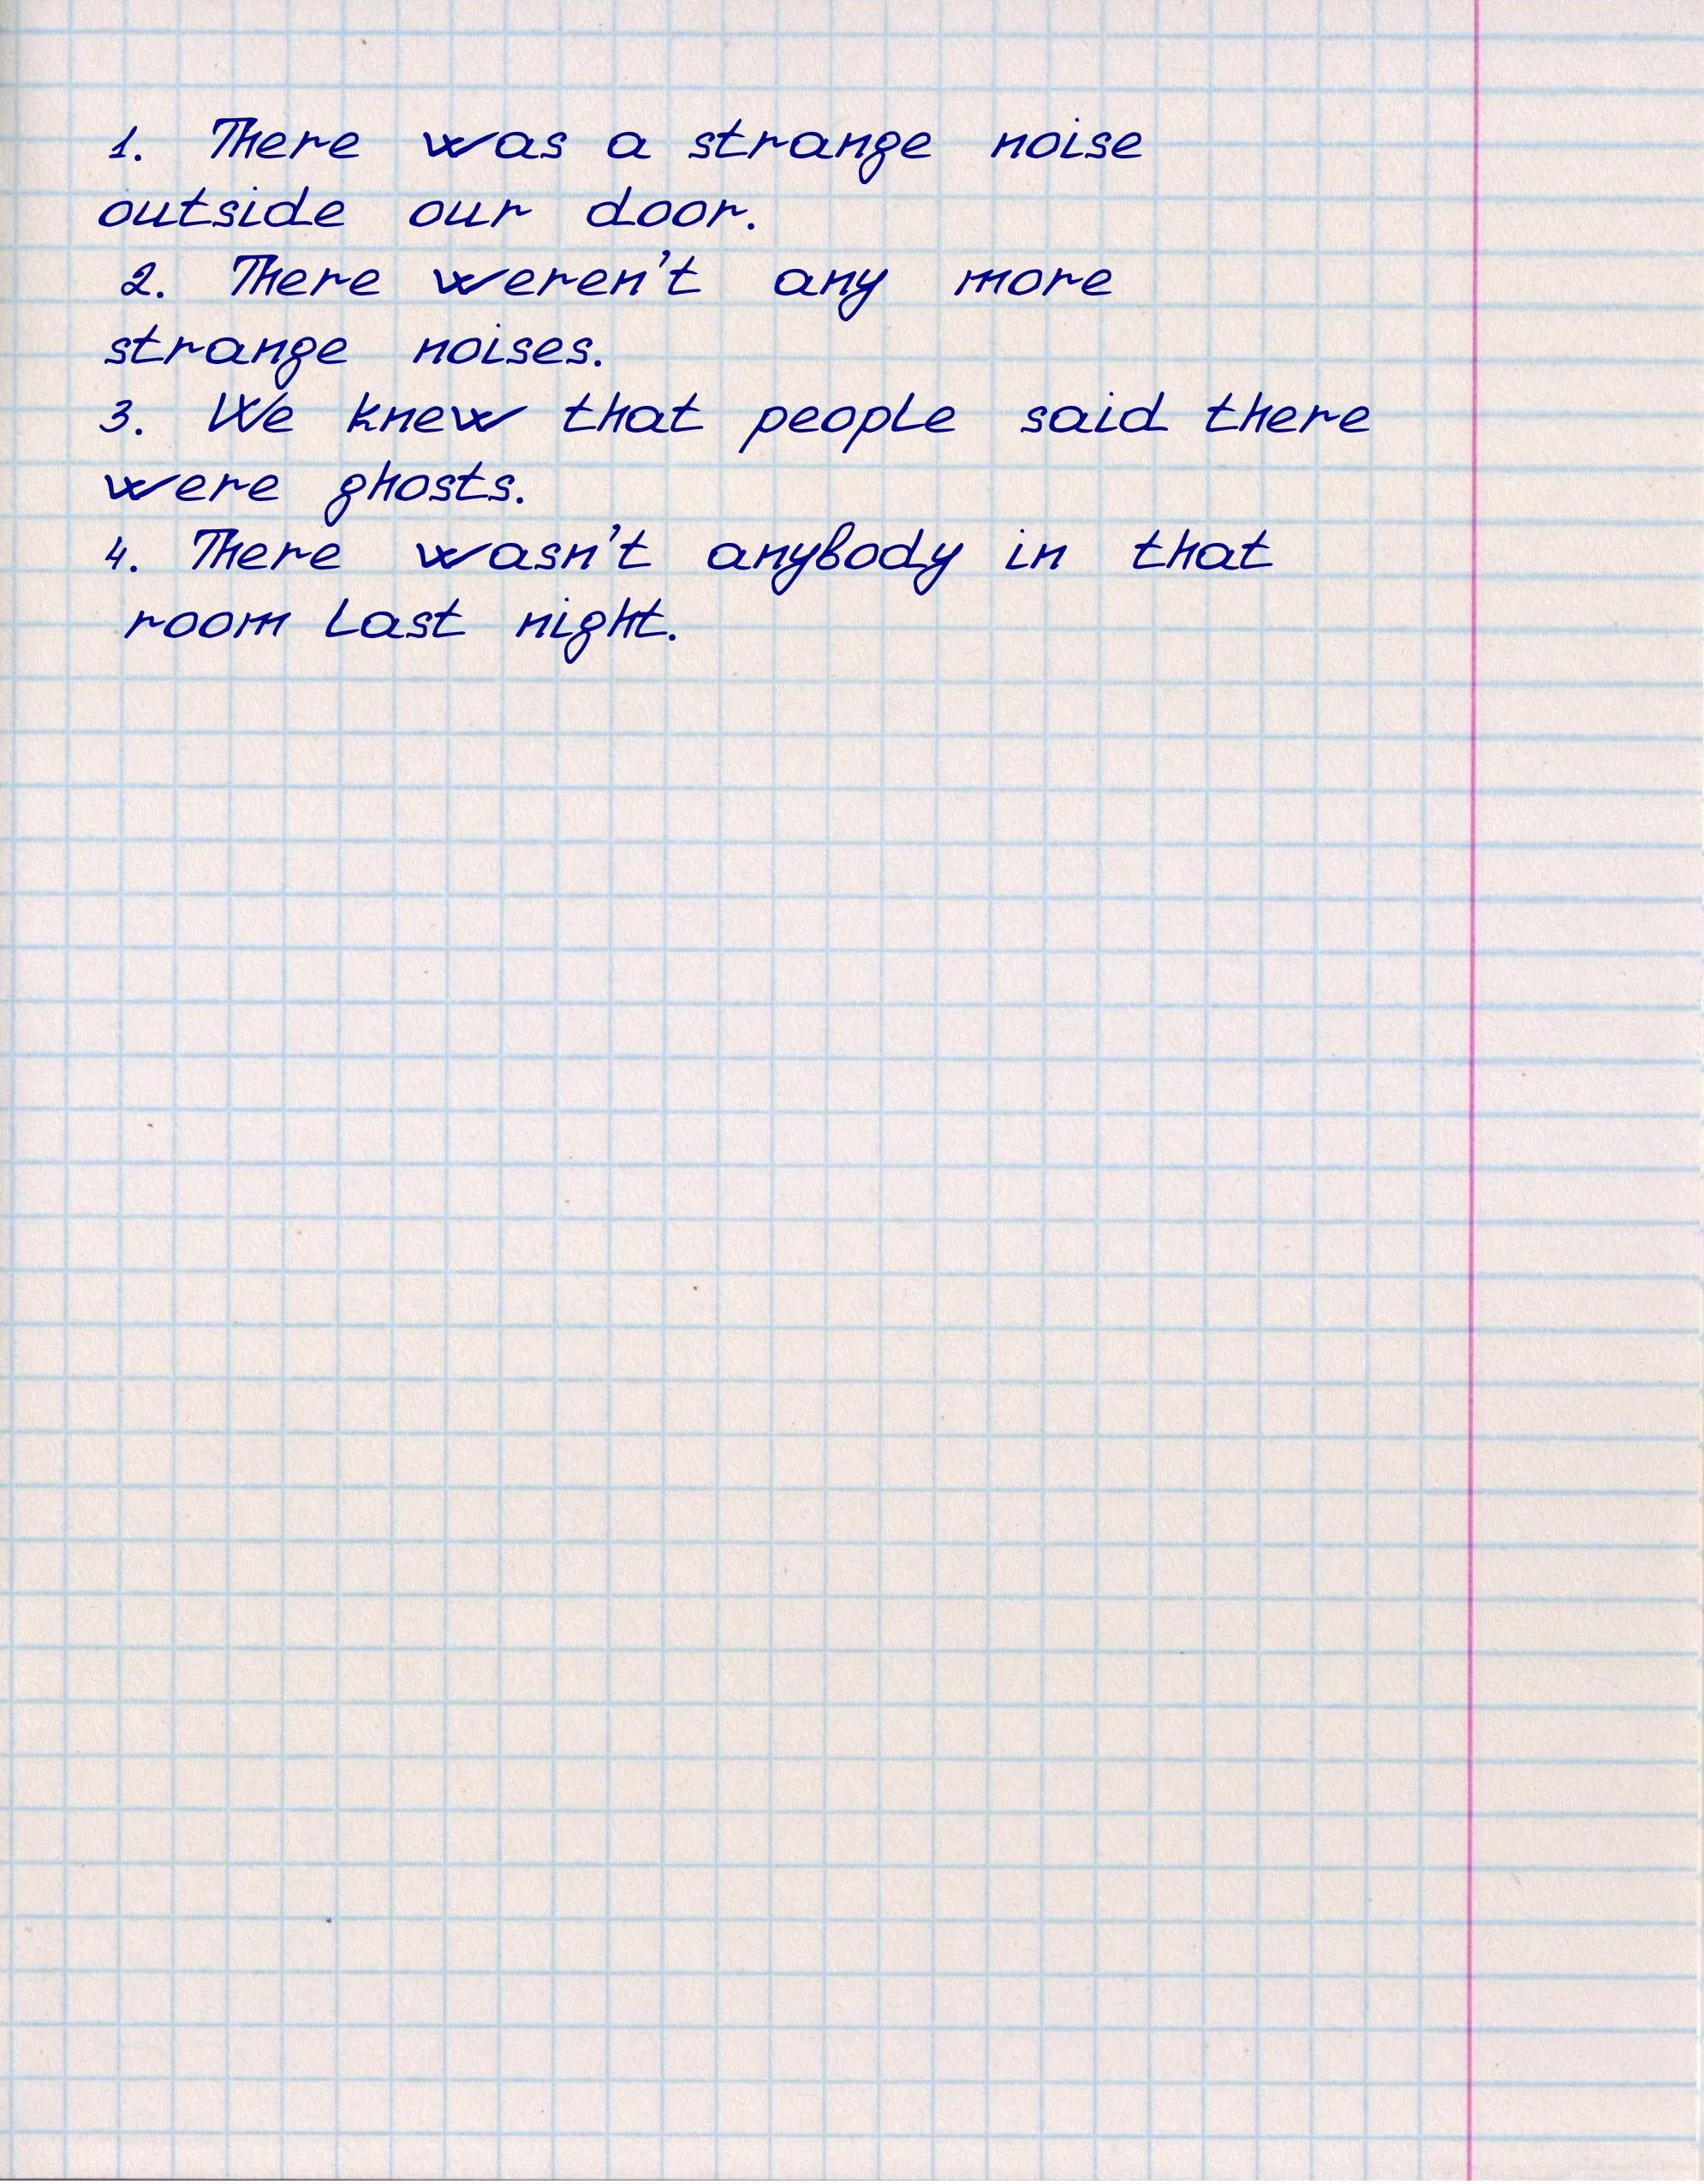 1. There was a strange noise
outside our door.
2. There weren't any more
strange noises.
3. We knew that people said there
were ghosts.
4. There wasn't anybody in that
room last night.